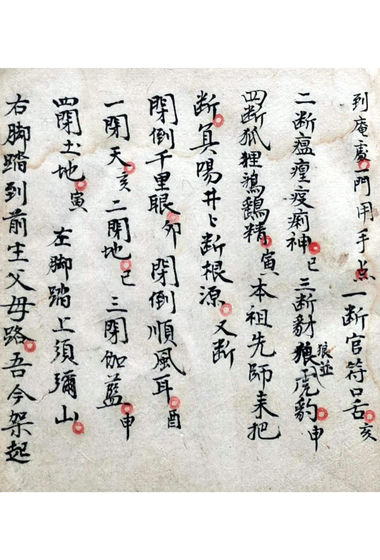 到庵處門用手点一断官符口舌亥
二断瘟㾮疫痢神巳三断豺狼虎豹申
狼並
四断狐狸鴉鷄精寅本祖先師来把
断冥陽井上断根源又断
閉倒千里眼卯 閉倒順風耳酉
一閉天亥 二閉地巳 三閉伽藍申
四閉土地寅 左脚踏上須彌山
右脚踏到前生父母路吾今架起